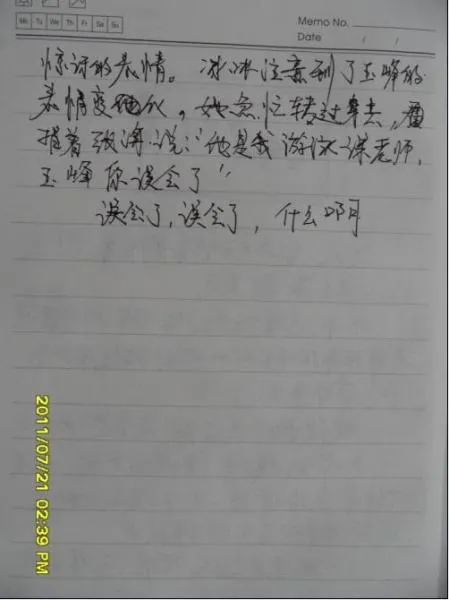 Memo No.
Mo Tu We Th Fr Sa Su
Date / /
惊讶的表情。冰冰注意到了玉峰的
表情变化,她急忙转过身去,
指着张涛说:"他是我游泳课老师,
玉峰你误会了"
误会了,误会了,什么啊
2011/07/21 02:39 PM